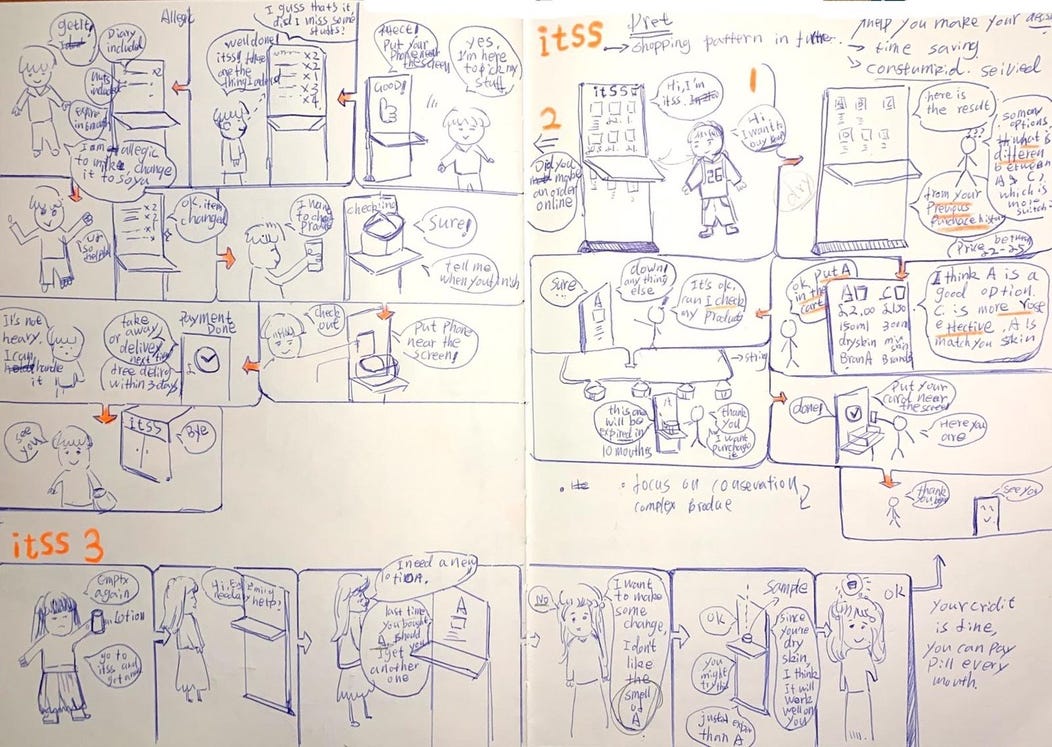 itss
shopping pattern in
help you make your
→ time saving
→ constumizd.
1
Hi, I'm
itss.
Hi
I want to
buy
here is
the result
so many
options
what is
different
between
A & C?
which is
more
from your
Previous
Purchase
Price
22-25
I think A is a
good option.
C is more
effective. A is
match you skin
Put A
in the
cart
ok
A
C
£2.00
£1.50
150ml
300ml
dryskin
mix
skin
BranA
Brands
It's ok,
can I check
my Product
down!
any thing
else
Sure
A
string
this one
will be
expired in
10 mouthes
thank
you
I want
purchase
it
done!
Put your
card near
the screen
Here you
are
thank
you
see you
focus on
complex
2
Did you
make
an order
online
yes,
I'm here
to pick my
stuff
Put your
Phone near
the screen
GOOD!
I guss that's it,
did I miss some
stuffs?
well done!
itss!
are the
thing I
×2
×2
×1
×3
×4
Allegic
getit!
Diary
included
Nuts
included
×2
I am allegic
to milk, change
it to soya
so
helpful
×2
×2
ok, item
changed
I want
to
checking
Sure!
tell me
when you finish
check
out
Put Phone
near the
screen!
Payment
Done
take
away
or delivey
next time
free delivy
within 3 days
It's not
heavy.
I can
handle
it
see
you
itss
Bye
itss 3
Empty
again
Lotion
go to
itss and
get
Hi,
help?
I need a new
lotion.
last time
you bought
A, should
I get you
another
one
A
No
I want
to make
some
change,
I don't
like
the
smell
of
A
Sample
OK
you
might
try this
than A
since
you're
dry
skin,
I think
It will
work
well on
you
OK
Your cridit
is fine,
you can pay
bill every
mouth.